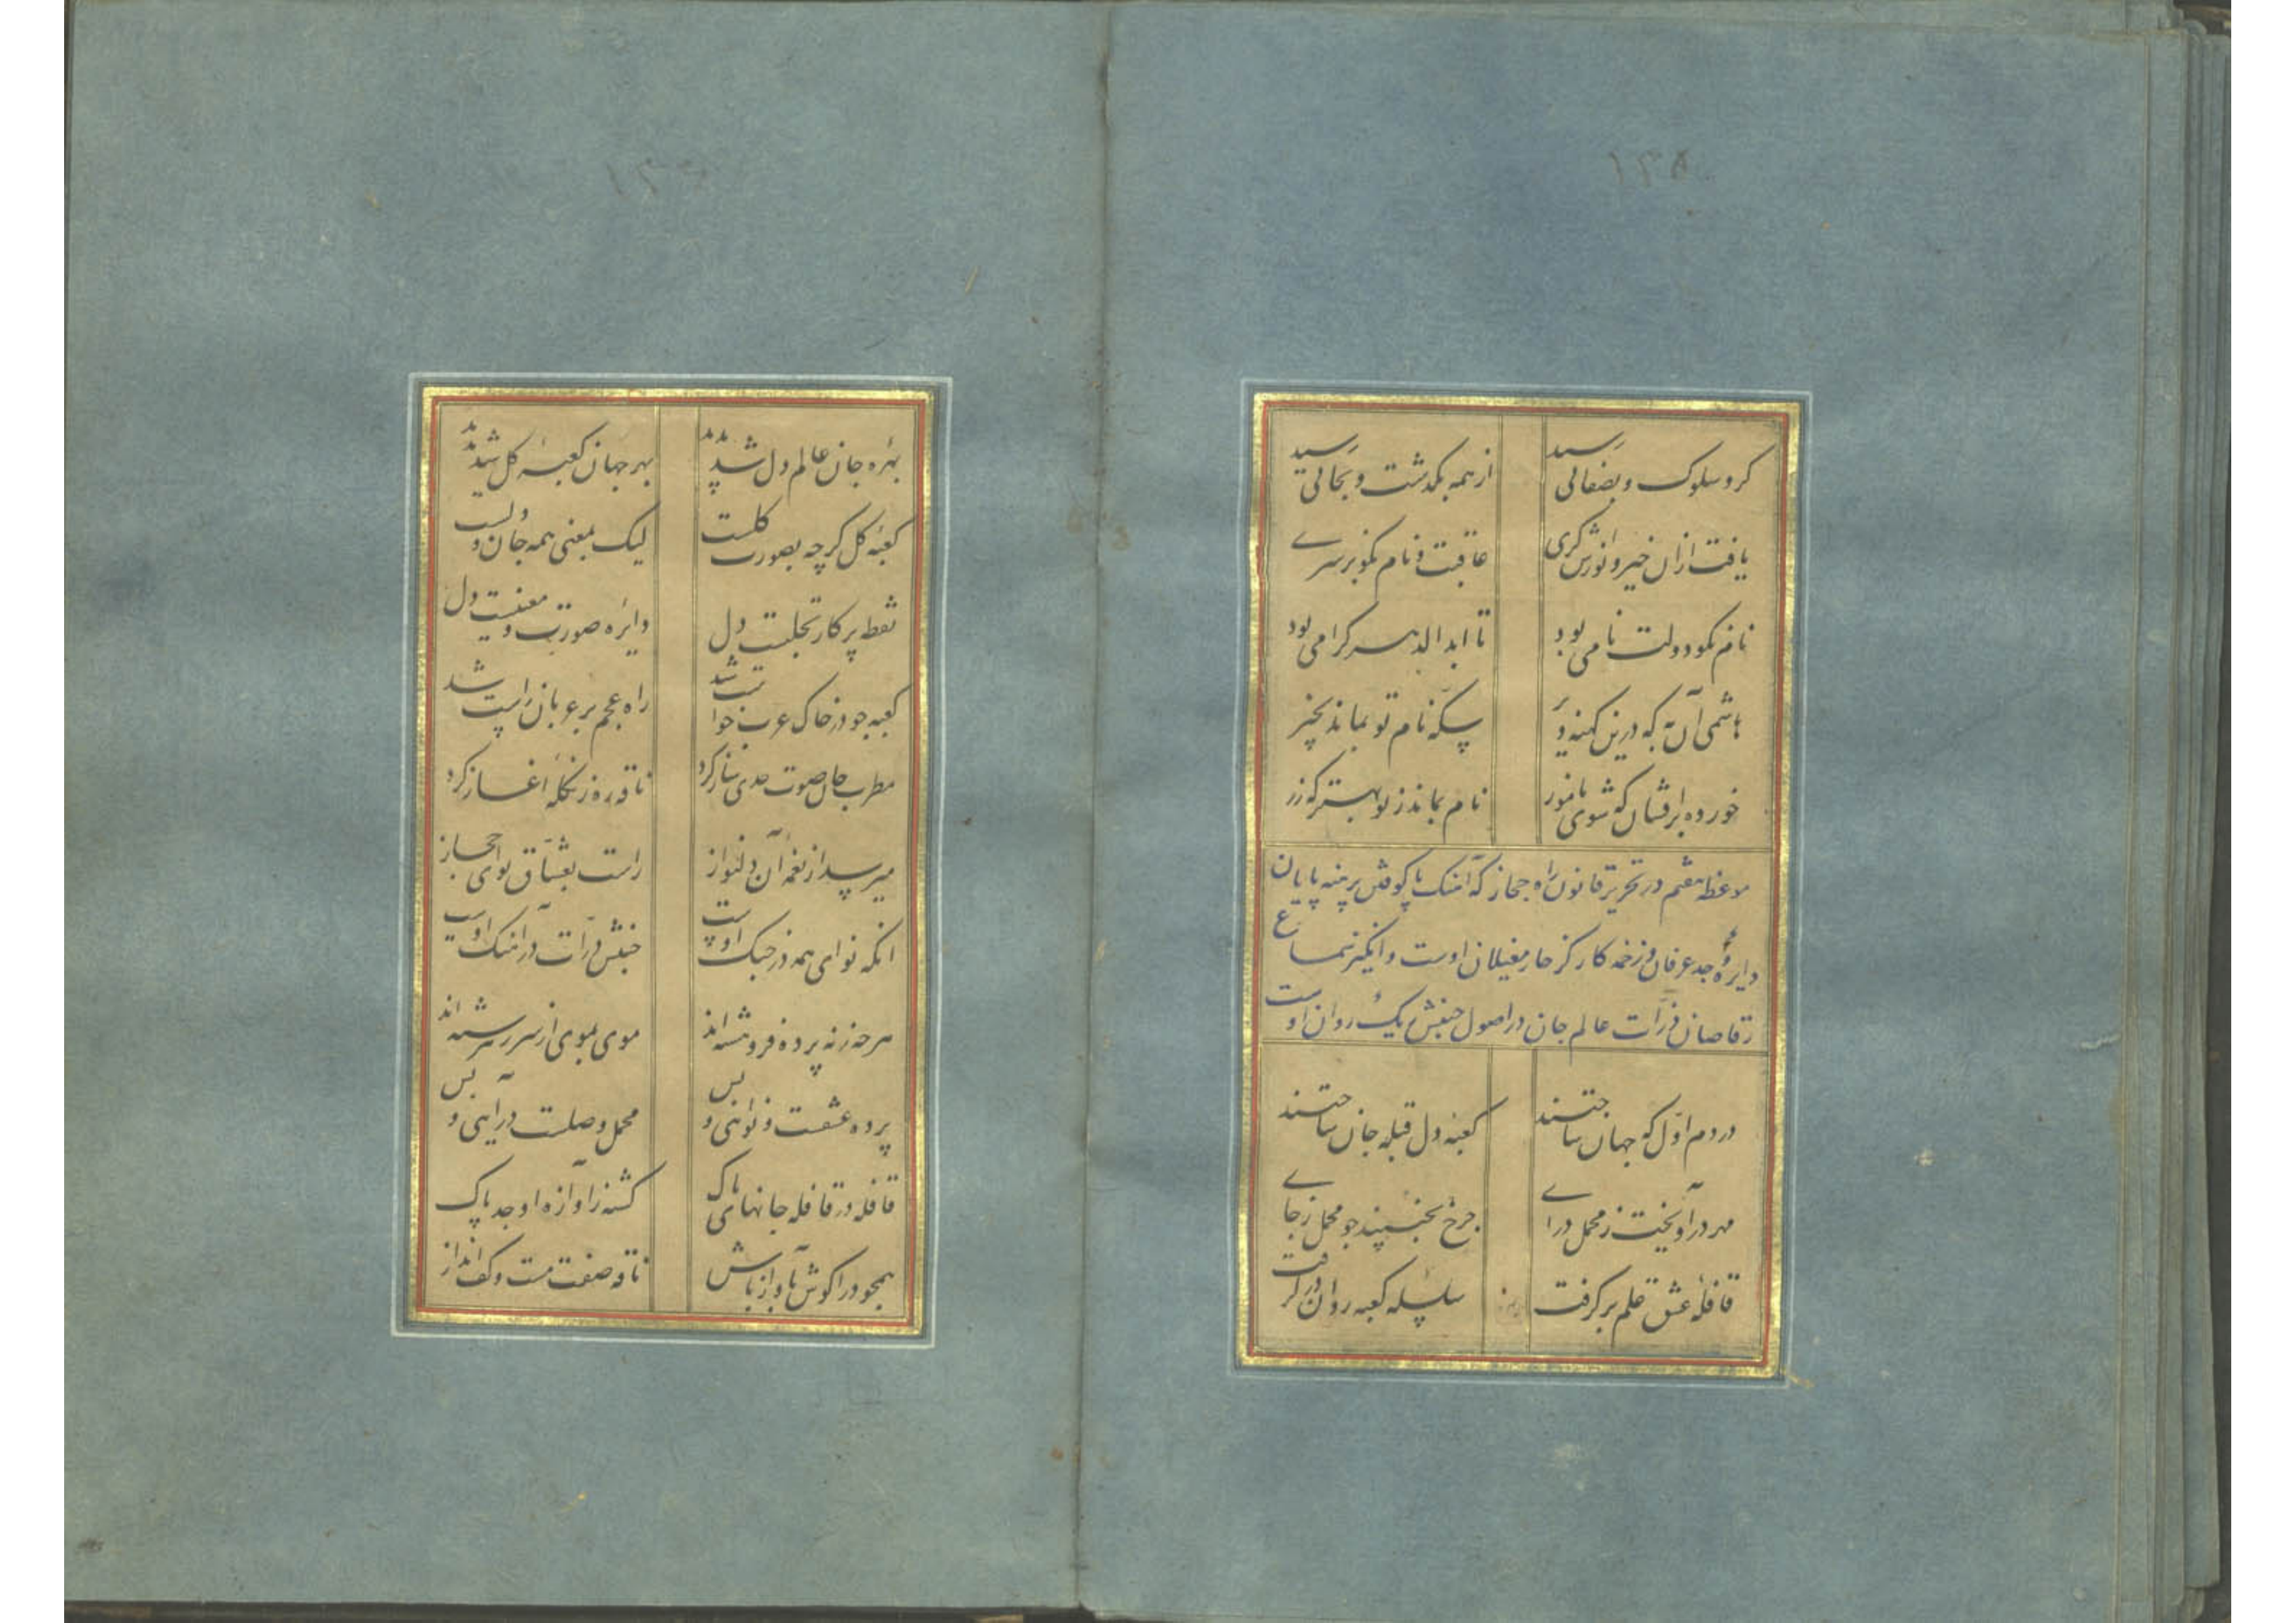 ۱۲۵
کرد سلوک و بصفائی رسید از همه بگذشت و بجائی رسید
یافت ازان خیر و انورش کری عاقبت و نام نکو بر سرے
نام نکو دولت نامی بود تا ابد الدهر گرامی بود
هاشمی آن به که درین کهنه دیر سکه نام تو بماند بخیر
خورده برافشان که شوی نامور نام بماند ز تو بهتر که زر
موعظه هفتم در تحریر قانون راه حجاز که آهنک پاکوفتن برهنه پایان
دایره وجد عرفان و زخمه کار کز خار مغیلان اوست و انگیز سماع
رقاصان ذرات عالم جان در اصول جنبش ریک روان اوست
در دم اول که جهان ساختند کعبه دل قبله جان ساختند
مهر درآویخت ز محمل درای چرخ بجنبید چو محمل ز جاے
قافلهٔ عشق علم بر گرفت سلسله کعبه روان در گرفت
بهره جان عالم دل شد پدید بهر جهان کعبهٔ گل شد پدید
کعبهٔ گل گر چه بصورت گلست لیک بمعنی همه جان و دلست
نقطه پرکار تجلیت دل دایره صورت و معنیت دل
کعبه چو در خاک عرب خواست شد راه عجم بر عربان راست شد
مطرب جان صوت حدی ساز کرد ناقه ره زنگله آغاز کرد
میرسد از نغمه آن دلنواز راست بعشاق نوای حجاز
آنکه نوای همه در چنگ اوست جنبش ذرات در آهنگ اوست
هر چه زنه پرده فروهشته اند موی بموی از سر سررشته اند
پرده عشقست و نوا نی و بس محمل وصلست درآیی و بس
قافله در قافله جانهای پاک گشته ز آوازه او جد پاک
همچو درا گوش بآواز باش ناقه صفت مست و کف انداز